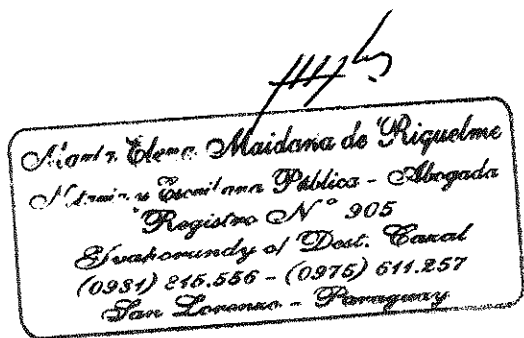 Marta Elena Maidana de Riquelme
Notaria y Escribana Pública - Abogada
Registro N° 905
Yvahorundy c/ Dect. Cazal
(0981) 215.556 - (0975) 611.257
San Lorenzo - Paraguay